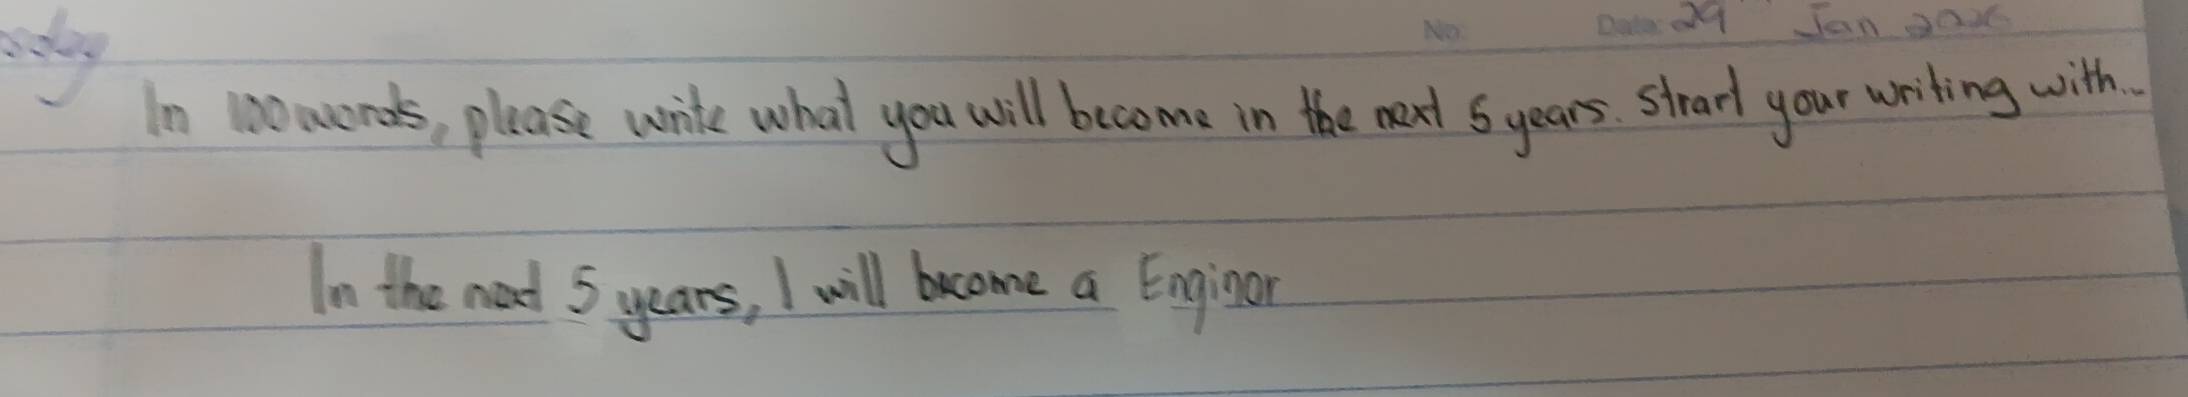 No: Date: 29 Jan 2026
In 100 words, please write what you will become in the next 5 years. Strart your writing with...
In the next 5 years, I will become a Enginor